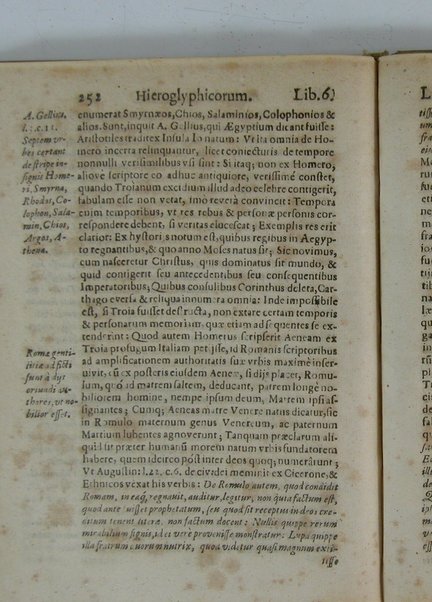 252 Hieroglyphicorum. Lib. 6.
A. Gellius.
l. : c. 11.
Septem vr-
bes certant
de stirpe in-
signis Home-
ri, Smyrna,
Rhodus, Co-
lophon, Sala-
min, Chios,
Argos, A-
thenæ.
enumerat Smyrnæos, Chios, Salaminios, Colophonios &
alios. Sunt, inquit A. Gellius, qui Ægyptium dicant fuisse:
Aristoteles tradit ex Insula Io natum: Vt ita omnia de Ho-
mero incerta relinquantur, licet coniecturis de tempore
nonnulli verisimilibus vsi sint: Si itaq; non ex Homero,
aliove scriptore eo adhuc antiquiore, verissimè constet,
quando Troianum excidium illud adeo celebre contigerit,
fabulam esse non vetat, imò reverà convincit: Tempora
enim temporibus, vt res rebus & personæ personis cor-
respondere debent, si veritas elucescat; Exemplis res erit
clarior: Ex hystorijs notum est, quibus regibus in Aegyp-
to regnantibus, & quo anno Moses natus sit; Sic novimus,
cum nasceretur Christus, quis dominatus sit mundo, &
quid contigerit seu antecedentibus seu consequentibus
Imperatoribus; Quibus consulibus Corinthus deleta, Car-
thago eversa & reliqua innumera omnia: Inde impossibile
est, si Troia fuisset destructa, non extare certam temporis
& personarum memoriam, quæ etiam ad sequentes se ex-
tenderint: Quod autem Homerus scripserit Aeneam ex
Troia profugum Italiam petijsse, id Romanis scriptoribus
ad amplificationem authoritatis suæ vrbis maximè inser-
uivit, cum ex posteris eiusdem Aeneæ, si dijs placet, Romu-
lum, quo ad matrem saltem, deducant, patrem longè no-
biliorem homine, nempe ipsum deum, Martem ipsi as-
signantes; Cumq; Aeneas matre Venere natus dicatur, sic
in Romulo maternum genus Venereum, ac paternum
Martium lubentes agnoverunt; Tanquam præclarum ali-
quid sit præter humanum morem natum vrbis fundatorem
habere, quem ideirco post inter deos quoq; numerârunt;
Vt Augustin: l. 22. c. 6. de civ. dei meminit ex Cicerone, &
Ethnicos vexat his verbis: De Romulo autem, quod condidit
Romam, in eaq; regnauit, auditur, legitur, non quia factum est,
quod antequam fuisset prophetatum, seu quod sit receptus in deos cre-
ditum tenent literæ, non factum docent: Nullis quippe rerum
mirabilium signis, id ei vere provenisse monstratur: Lupa quippe
illa fratrum duorum nutrix, quod videtur quasi magnum exti-
tisse
Romæ genti-
litiæ ad ficti
sunt à dijs
oriundi au-
thores, vt no-
bilior esset.